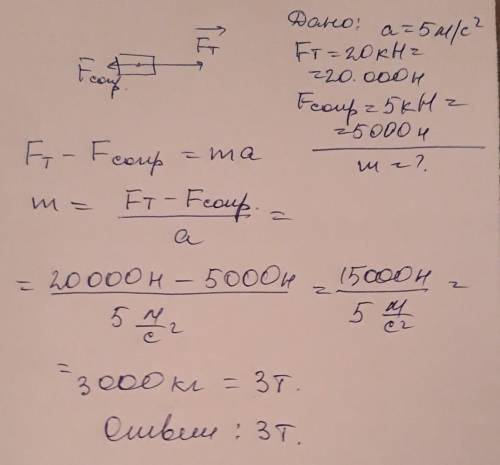 Дано: a = 5 м/с²
Fт = 20кН =
= 20.000н
Fсопр = 5кН =
= 5000н
m = ?
Fт
Fсопр.
Fт − Fсопр = ma
m = Fт − Fсопр. / a =
= 20000н − 5000н / 5 м/с² = 15000н / 5 м/с² =
= 3000кг = 3т.
Ответ: 3т.